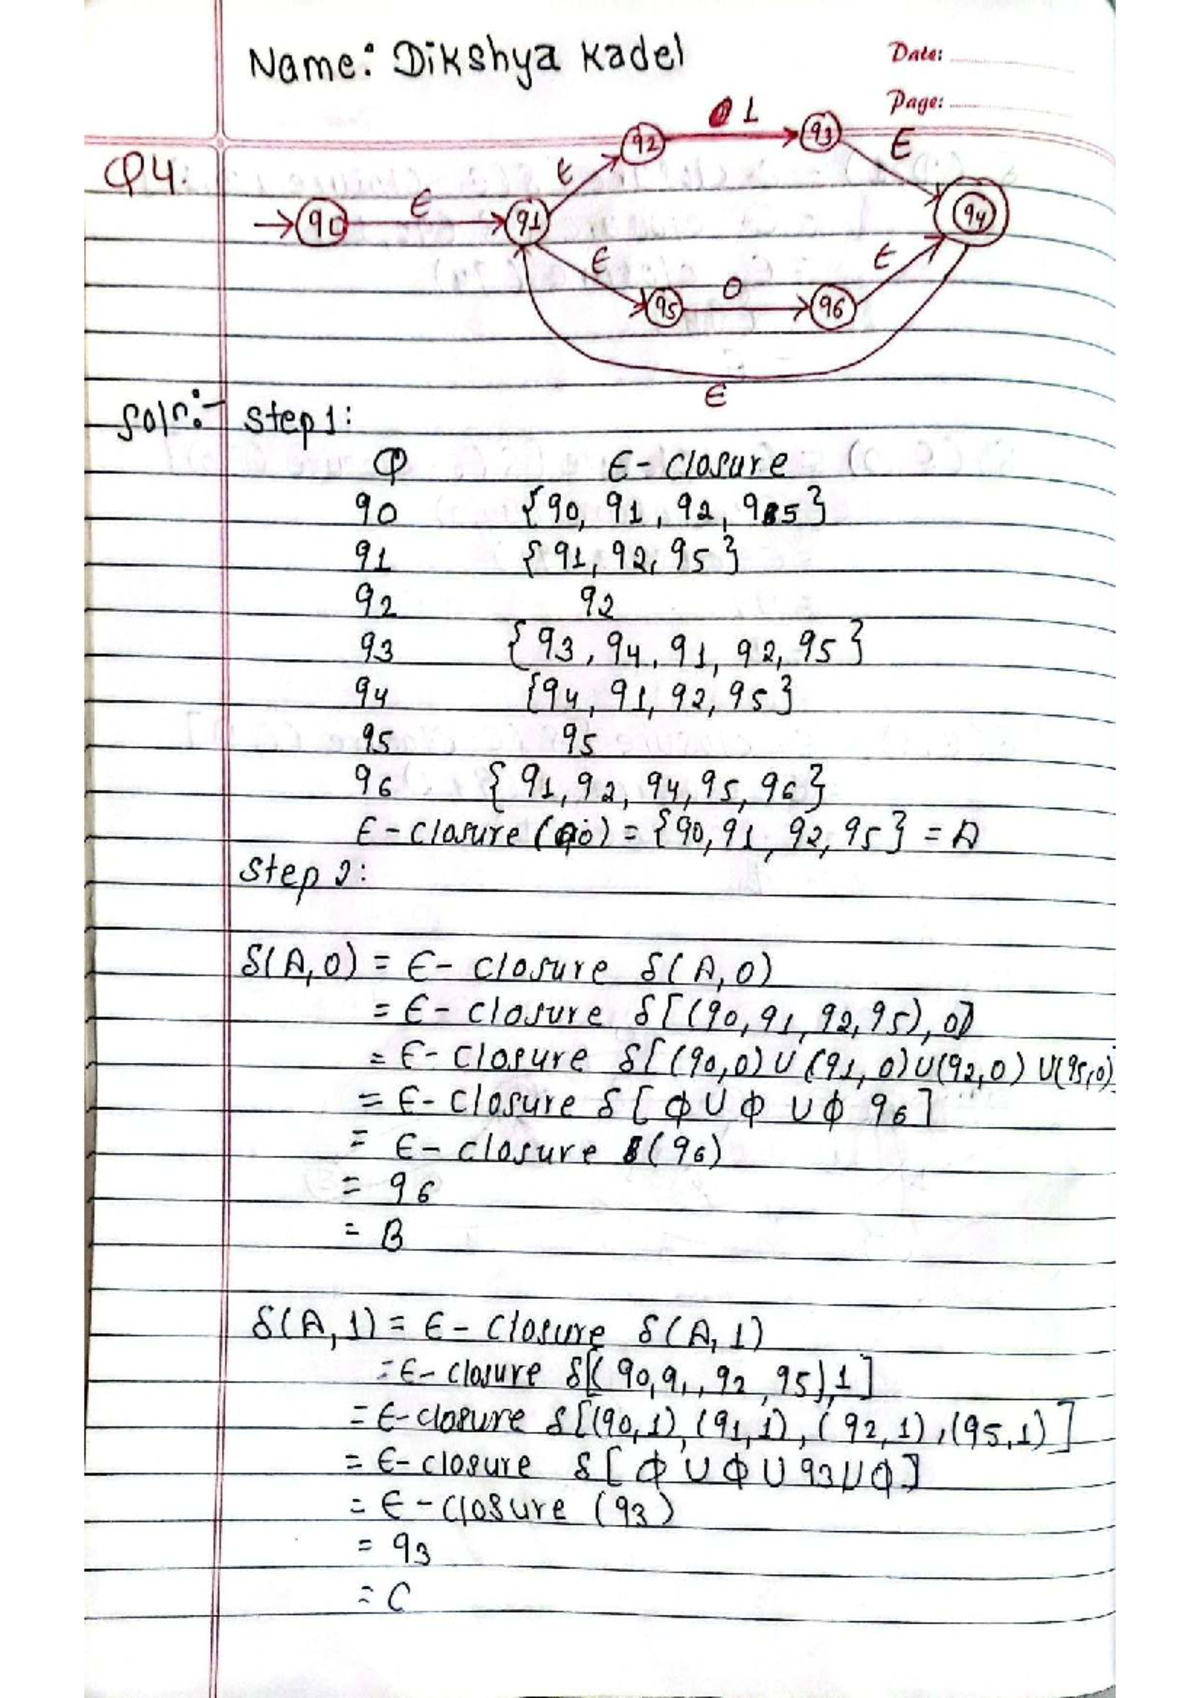 Name: Dikshya Kadel
Date:
Page:
Q4.
1
q2 q3
ϵ ϵ
q0 ϵ q1 q4
ϵ ϵ
q5 0 q6
ϵ
Soln:- Step 1:
Q ϵ- closure
q0 {q0, q1, q2, q5}
q1 {q1, q2, q5}
q2 q2
q3 {q3, q4, q1, q2, q5}
q4 {q4, q1, q2, q5}
q5 q5
q6 {q1, q2, q4, q5, q6}
ϵ- closure (q0) = {q0, q1, q2, q5} = A
Step 2:
δ(A,0) = ϵ- closure δ(A,0)
= ϵ- closure δ[(q0,q1,q2,q5),0]
= ϵ- closure δ[(q0,0) ∪ (q1,0) ∪ (q2,0) ∪ (q5,0)
= ϵ- closure δ[ϕ ∪ ϕ ∪ ϕ q6]
= ϵ- closure (q6)
= q6
= B
δ(A,1) = ϵ- closure δ(A,1)
= ϵ- closure δ[(q0,q1,q2,q5),1]
= ϵ- closure δ[(q0,1),(q1,1),(q2,1),(q5,1)]
= ϵ- closure δ[ϕ ∪ ϕ ∪ q3 ∪ ϕ]
= ϵ- closure (q3)
= q3
= C